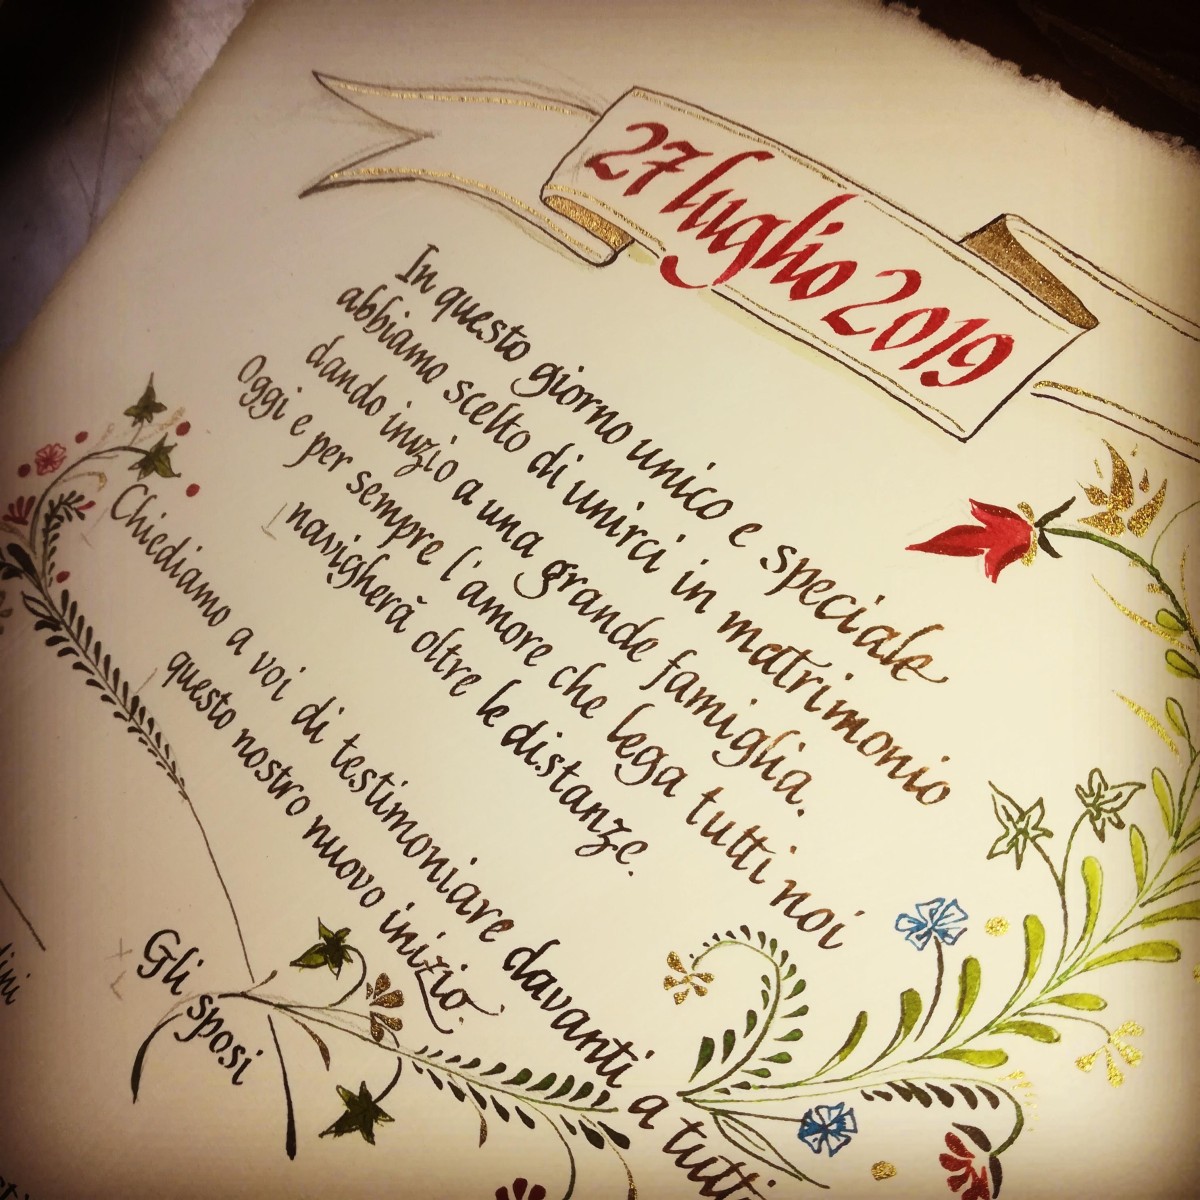 27 luglio 2019
In questo giorno unico e speciale
abbiamo scelto di unirci in matrimonio
dando inizio a una grande famiglia.
Oggi e per sempre l'amore che lega tutti noi
navigherà oltre le distanze.
Chiediamo a voi di testimoniare davanti a tutti
questo nostro nuovo inizio.
Gli sposi